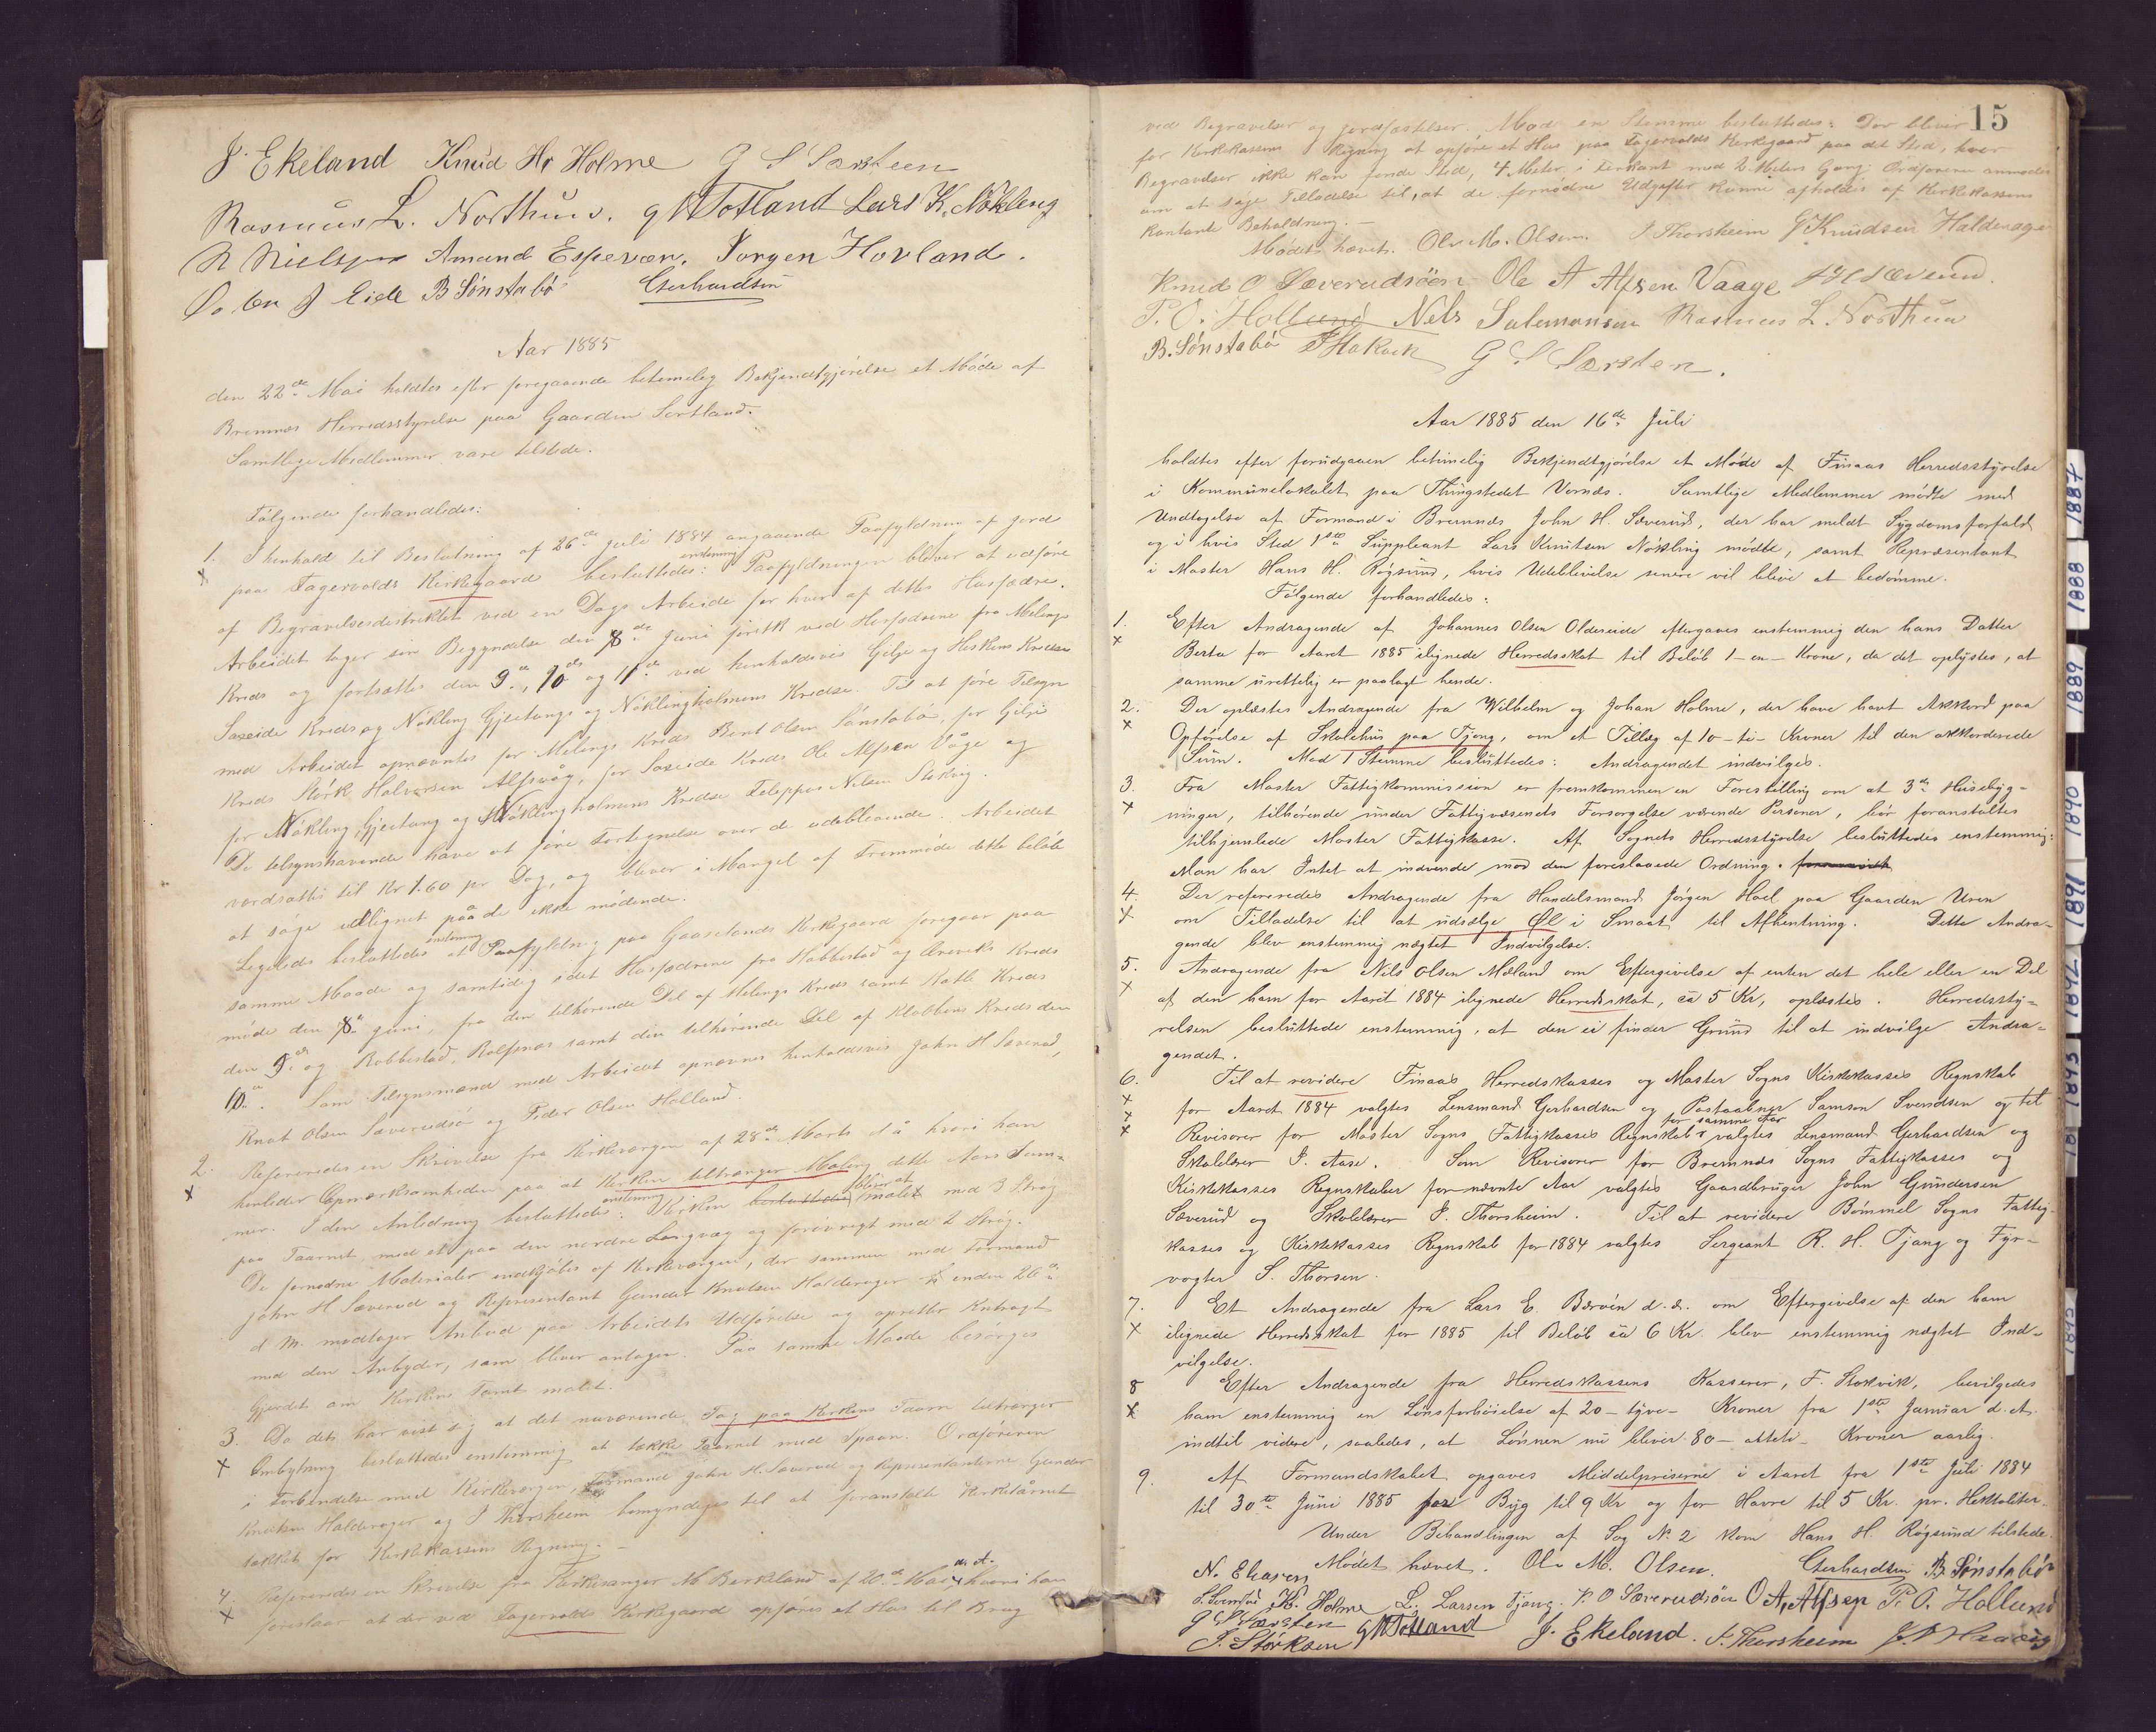 J. Ekeland Knud Hr Holme G S Særsteen
Rasmus L. Northun. G W Totland Lars K. Nökling
N Nielsen Amund Espevær. Jorgen Hovland.
J Eide B Sönstabö Gerhardsen
Aar 1885
den 22de Mai holdtes efter foregaaende betimelig Bekjendtgjörelse et Möde af
Bremnes Herredsstyrelse paa Gaarden Sortland.
Samtlige Medlemmer vare tilstede.
Fölgende forhandledes:
1. I henhold til Beslutning af 26de Juli 1884 angaaende Paafyldning af Jord
x paa Fagervolds Kirkegaard besluttedes enstemmig: Paafyldningen bliver at udföre
af Begravelsesdistriktet ved en Dags Arbeide for hver af dettes Husfædre.
Arbeidet tager sin Begyndelse den 8de Juni förstk ved Husfædrene fra Melings
Kreds og fortsættes den 9de, 10de og 11de ved henholdsvis Gilje og Hiskens Kredse
Saxeide Kreds og Nökling Gjeitungs og Nöklingholmens Kredse. Til at före Tilsyn
med Arbeidet opnævntes for Melings Kreds Bent Olsen Sönstabö, for Gilje
Kreds Störk Halvorsen Alfsvåg, for Saxeide Kreds Ole Alfsen Våge og
for Nökling, Gjeitung og Nöklingholmens Kredse Feleppus Nilsen Stokvig.
De tilsynshavende have at före Fortegnelse over de udeblivende. Arbeidet
værdsættes til Kr 1.60 pr Dag, og bliver i Mangel af Fremmöde dette belöb
at söge udlignet på de ikke mödende.
Ligeledes besluttedes enstemmig at Paafyldning paa Gaaselands Kirkegaard foregaar paa
samme Maade og samtidig idet Husfædrene fra Habbestad og Æreviks Kreds
möde den 8de Juni, fra den tilhörende Del af Melings Kreds samt Katle Kreds
den 9de og Bobbestad, Rolfsnæs samt den tilhörende Del af Klubbens Kreds den
10de. Som Tilsynsmænd med Arbeidet opnævnes henholdsvis John H Sæverud,
Knut Olsen Sæverudsö og Peder Olsen Holland.
2. Refereredes en Skrivelse fra Kirkeværgen af 28de Marts d å hvori han
x henleder Opmærksomheden paa at Kirken tiltrænger Maling dette Aars Som-
mer. I den Anledning besluttedes enstemmig: Kirken bliver at malet med 3 Strög
paa Taarnet, med et paa den nordre Langvæg og forövrigt med 2 Strög.
De fornødne Materialer indkjöbes af Kirkeværgen, der sammen med Formand
John H Sæverud og Repræsentant Gunder Knutsen Halderager inden 26de
d M. modtager Anbud paa Arbeidets Udförelse og opretter Kontragt
med den Anbyder, som bliver antagen. Paa samme Maade besörges
Gjerdet om Kirkens Tomt malet.
3. Da det har vist sig at det nuværende Tag paa Kirkens Taarn tiltrænger
x Ombytning besluttedes enstemmig at tække Taarnet med Spaan. Ordföreren
i Forbindelse med Kirkeværgen, Formand John H. Sæverud og Repræsentanterne Gunder
Knutsen Halderager og J Thorsheim bemyndiges til at foranstalte Kirketårnet
tækket for Kirkekassens Regning.
4. Refereredes en Skrivelse fra Kirkesanger M Birkeland af 20de Mai d. A. hvori han
x foreslaar at der ved Fagervolds Kirkegaard opföres et Hus til Brug
15
ved Begravelser og Jordfæstelser. Mod en Stemme besluttedes: Der bliver
for Kirkekassens Regning at opföre et Hus paa Fagervolds Kirkegaard paa det Sted, hvor
Begravelser ikke kan finde Sted, 4 Meter i Firkant med 2 Meters Gang. Ordföreren anmodes
om at söge Tilladelse til, at de fornödne Udgifter kunne afholdes af Kirkekassens
kontante Beholdning.
Mödet hævet. Ole M. Olsen. J Thorsheim G Knudsen Halderager
Knud O Sæverudsöen Ole A Alfsen Vaage J H Sæverud.
P. O. Hollund Nels Salemonsen Rasmus L. Northun
B. Sönstabö G S Særsten.
Aar 1885 den 16de Juli
holdtes efter forudgaaen betimelig Bekjendtgjörelse et Möde af Finaas Herredsstyrelse
i Kommunelokalet paa Thingstedet Vornæs. Samtlige Medlemmer mödte med
Undtagelse af Formand i Bremnæs John H. Sæverud, der har meldt Sygdomsforfald
og i hvis Sted 1ste Suppleant Lars Knutsen Nökling mödte, samt Repræsentant
i Moster Hans H. Rögsund, hvis Udeblivelse senere vil blive at bedömme.
Fölgende forhandledes:
1. Efter Andragende af Johannes Olsen Oldereide eftergaves enstemmig den hans Datter
x Berta for Aaret 1885 ilignede Herredsskat til Belöb 1 - en - Krone, da det oplystes, at
samme urettelig er paalagt hende.
2. Der oplæstes Andragende fra Wilhelm og Johan Holme, der have havt Akkord paa
x Opförelse af Skolehus paa Tjong, om et Tillæg af 10 - ti - Kroner til den akkorderede
Sum. Mod 1 Stemme besluttedes: Andragendet indvilges.
3. Fra Moster Fattigkommission er fremkommen en Forestilling om at 3de Husebyg-
x ninger, tilhörende under Fattigvæsenets Forsorgelse værende Personer, bör foranstaltes
tilhjemlede Moster Fattigkasse. Af Sognets Herredsstyrelse besluttedes enstemmig:
Man har Intet at indvende mod den foreslaaede Ordning.
4. Der refereredes Andragende fra Handelsmand Jörgen Hoel paa Gaarden Uren
x om Tilladelse til at udsælge Øl i Smaat til Afhentning. Dette Andra-
gende blev enstemmig nægtet Indvilgelse.
5. Andragende fra Nils Olsen Mæland om Eftergivelse af enten det hele eller en Del
x af den ham for Aaret 1884 ilignede Herredsskat, ca 5 Kr, oplæstes. Herredssty-
relsen besluttede enstemmig, at den ei finder Grund til at indvilge Andra-
gendet.
6. Til at revidere Finaas Herredskasses og Moster Sogns Kirkekasses Regnskab
x for Aaret 1884 valgtes Lensmand Gerhardsen og Postaabner Samson Svendsen og til
x Revisorer for Moster Sogns Fattigkasses Regnskab for samme Aar valgtes Lensmand Gerhardsen og
x Skolelærer J. Aase. Som Revisorer for Bremnæs Sogns Fattigkasses og
Kirkekasses Regnskaber for nævnte Aar valgtes Gaardbruger John Gundersen
Sæverud og Skolelærer J. Thorsheim. Til at revidere Bömmel Sogns Fattig-
kasses og Kirkekasses Regnskab for 1884 valgtes Sergeant R. H. Tjong og Fyr-
vogter S. Thorsen.
7. Et Andragende fra Lars E. Børvén d.æ. om Eftergivelse af den ham
x ilignede Herredsskat for 1885 til Belöb ca 6 Kr. blev enstemmig nægtet Ind-
vilgelse.
8 Efter Andragende fra Herredskassens Kasserer, F. Stokvik, bevilgedes
x ham enstemmig en Lönsforhöielse af 20 - tyve - Kroner fra 1ste Januar d. A.
indtil videre, saaledes, at Lönnen nu bliver 80 - otteti - Kroner aarlig.
9. Af Formandskabet opgaves Middelpriserne i Aaret fra 1ste Juli 1884
til 30te Juni 1885 for Byg til 9 Kr og for Havre til 5 Kr. pr. Hektoliter.
Under Behandlingen af Sag No 2 kom Hans H. Rögsund tilstede.
Mödet hævet. Ole M. Olsen. Gerhardsen B Sönstabö
N. Ekaren K. Holme L. Larsen Tjong. K O Sæverudsöen O A. Alfsen P. O. Hollund
G S Særsten G W Totland J. Ekeland. J. Thorsheim
J. Störksen
1887
1888
1889
1890
1891
1892
1893
1895